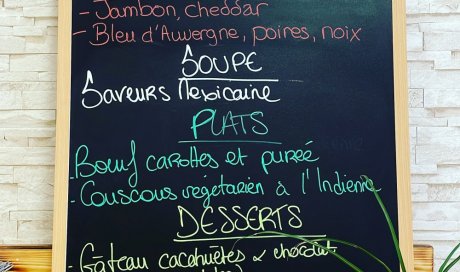 - Jambon, cheddar
- Bleu d'Auvergne, poires, noix
SOUPE
Saveurs Mexicaine
PLATS
- Boeuf carottes et purée
- Couscous végétarien à l'Indienne
DESSERTS
- Gâteau cacahuètes & chocolat